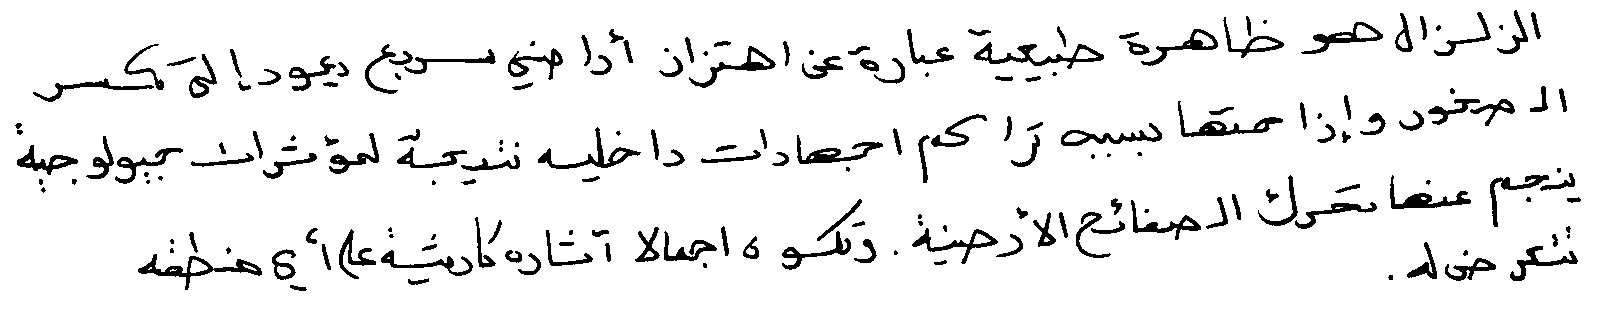 الزلزال هو ظاهرة طبيعية عبارة عن اهتزاز أراضي سريع يعود إلى تكسر
الصخور وإزاحتها بسبب تراكم اجهادات داخليه نتيجة لمؤثرات جيولوجية
ينجم عنها تحرك الصفائح الأرضية. وتكون اجمالا آثاره كارثية على أي منطقه
تتعرض له.